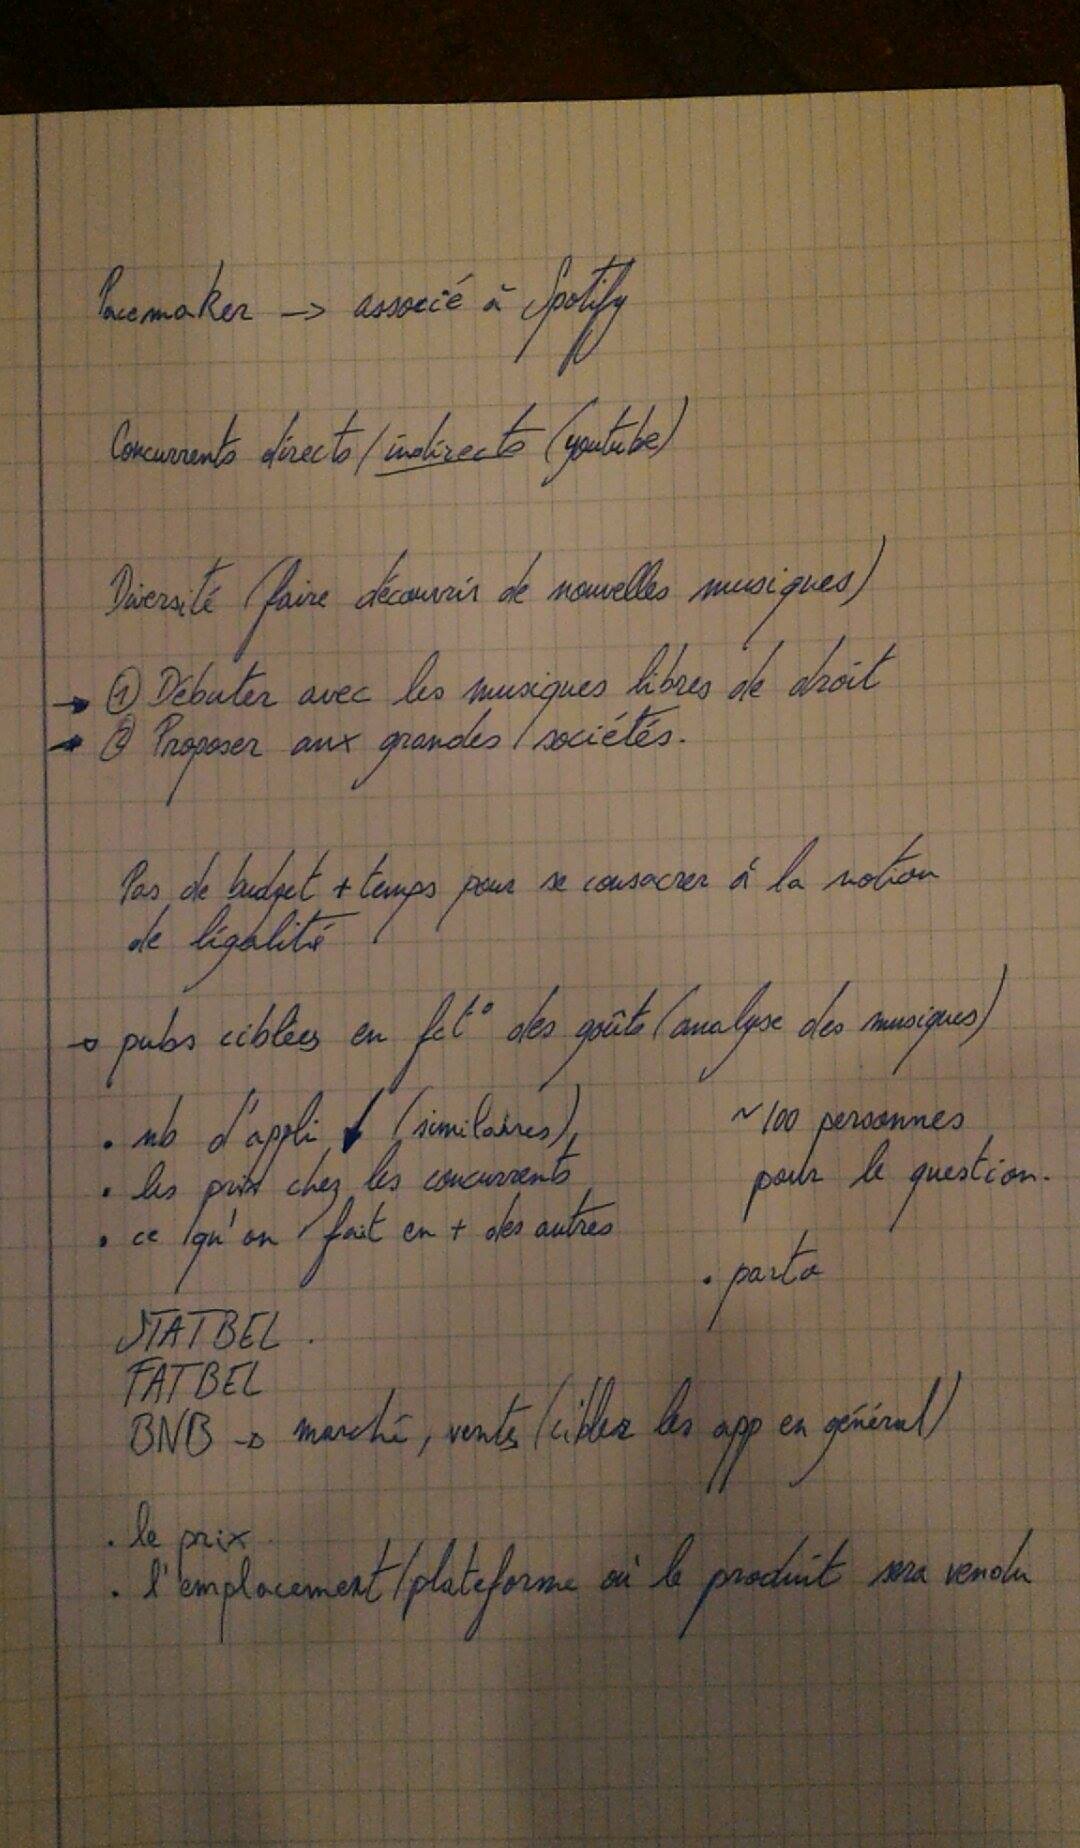 Pacemaker -> associé à Spotify
Concurrents directs / indirects (youtube)
Diversité (faire découvrir de nouvelles musiques)
→ ① Débuter avec les musiques libres de droit
→ ② Proposer aux grandes sociétés.
Pas de budget + temps pour se consacrer à la notion
de légalité
→ pubs ciblées en fct° des goûts (analyse des musiques)
• nb d'appli ↓ (similaires)
• les prix chez les concurrents
• ce qu'on fait en + des autres
~100 personnes
pour le question.
STATBEL.
FATBEL
BNB → marché, ventes (ciblez les app en général)
• le prix
• l'emplacement/plateforme où le produit sera vendu